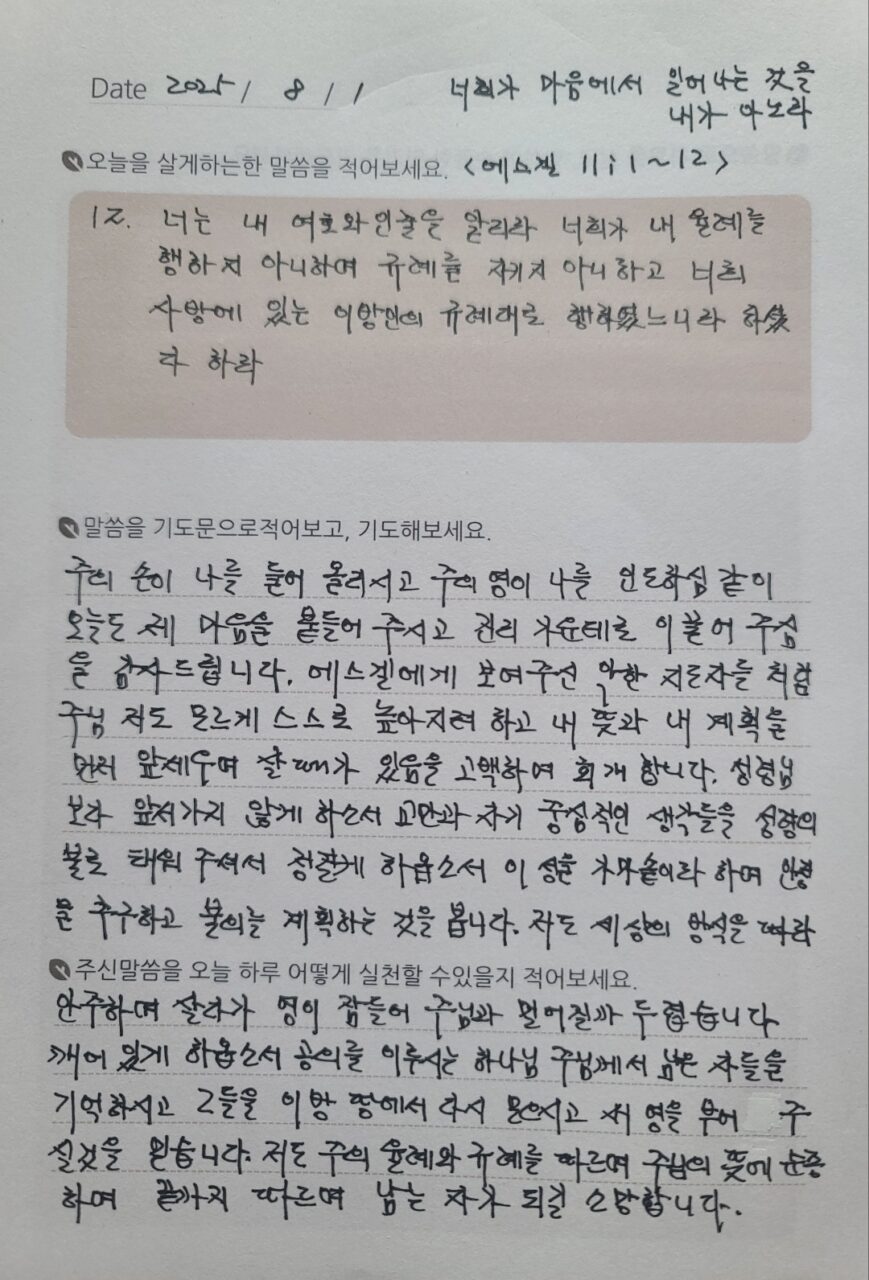 Date 2025 / 8 / 1 너희가 마음에서 일어나는 것을
내가 아노라
오늘을 살게하는한 말씀을 적어보세요. <에스겔 11:1~12>
12. 너는 내 여호와인줄을 알리라 너희가 내 율례를
행하지 아니하며 규례를 지키지 아니하고 너희
사방에 있는 이방인의 규례대로 행하였느니라 하셨
다 하라
말씀을 기도문으로적어보고, 기도해보세요.
주의 손이 나를 들어 올리시고 주의 영이 나를 인도하심 같이
오늘도 제 마음을 붙들어 주시고 진리 가운데로 이끌어 주심
을 감사드립니다. 에스겔에게 보여주신 악한 지도자들 처럼
주님 저도 모르게 스스로 높아지려 하고 내 뜻과 내 계획을
먼저 앞세우며 살 때가 있음을 고백하며 회개 합니다. 성령님
보다 앞서가지 않게 하소서 교만과 자기 중심적인 생각들을 성령의
불로 태워 주셔서 정결케 하옵소서 이 성을 가마솥이라 하며 안정
을 추구하고 불의를 계획하는 것을 봅니다. 저도 세상의 방식을 따라
주신말씀을 오늘 하루 어떻게 실천할 수있을지 적어보세요.
안주하며 살다가 영이 잠들어 주님과 멀어질까 두렵습니다
깨어 있게 하옵소서 공의를 이루시는 하나님 주님께서 남은 자들을
기억하시고 그들을 이방 땅에서 다시 모으시고 새 영을 부어 주
실것을 믿습니다. 저도 주의 율례와 규례를 따르며 주님의 뜻에 순종
하며 끝까지 따르며 남는 자가 되길 소망합니다.